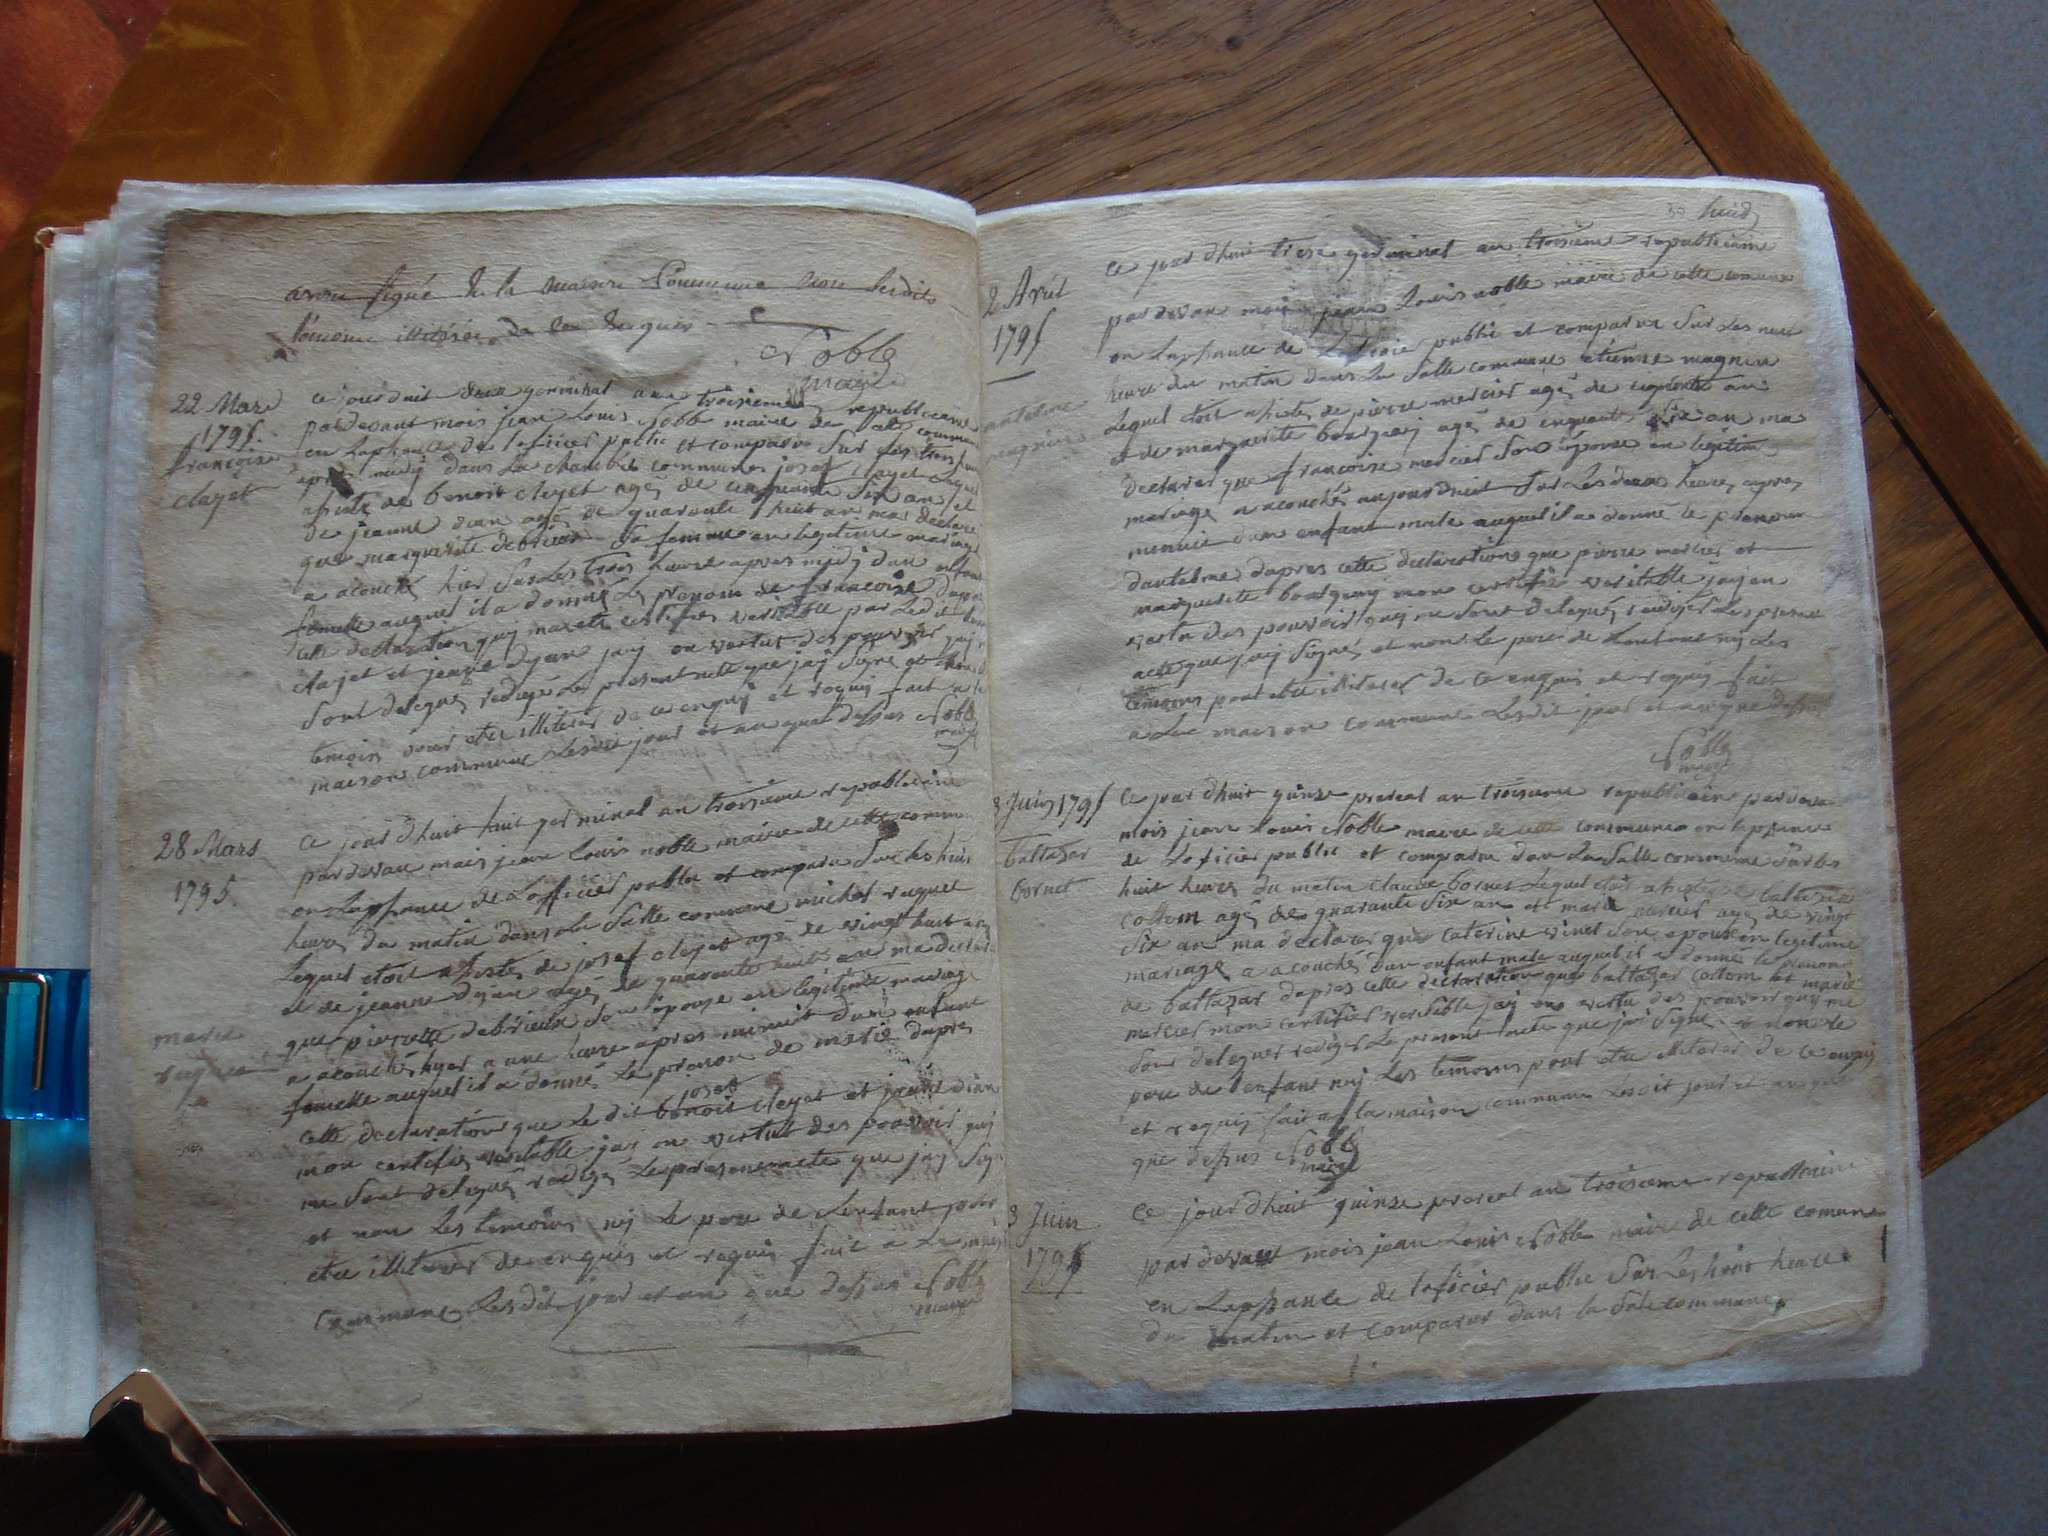 avon signé de la maison Commune non lesdits
témoins illitérés de ce requis
Noble
maire
22 Mars
1795.
françoise
clayet
ce jourduit deux germinal ann troisieme republicaine
pardevant mois jean Louis Noble maire de cete commune
en Lapsance de l'oficier public et comparu sur les trois heure
apres midy dans la chambre commune josef clayet lequel
asisté de benoit cleyet agé de cinquante six an et
de jeanne dian agé de quarante huit an ma declaré
que marguerite debrieux sa femme en legitime mariage
a acouché hier sur les trois heure apres midy dun enfant
femelle auquel il a donné le prenom de francoise dapres
cette declaration quy maeté certifié veritable par le dit
clajet et jeanne dyan jay en vertut des pouvoir quy
sont delegués redigé le present acte que jay signé et non
temoin pour etre illiteres de ce enquis et requis fait a la
maison commune lesdit jour et an que dessus Noble
maire
28 Mars
1795.
marie
ruguet
ce jour dhuit huit germinal an troisieme republicaine
pardevan mois jean Louis noble maire de cette commune
en Lapsance de L'officier public et comparu sur les huit
heures du matin dans la salle commune michel ruguet
Lequel etoit asistés de josef cleyet agé de vingt huit an
et de jeanne dyan agé de quarante huit an ma declaré
que pierrette debrieux son épouse en legitime mariage
a acouchés hyer a une heure apres minuit dun enfant
femelle auquel il a donné le prenom de marie dapres
josef
cette declaration que le dit benoit cleyet et jeanne dian
mon certifies veritable jay en vertut des pouvoir quy
me sont delegués redigés le present acte que jay signé
et non les temoins nij le pere de lenfant pour
etre illiteres de enquis et requis fait a la maison
commune lesdit jour et an que dessus Noble
maire
30 huid
2 Avril
1795
antelme
magnin
ce jour dhuit treise germinal an troisieme republicaine
pardevan mois jean Louis noble maire de cette commune
en Lapsance de Loficie publié et comparu sur les neuf
heure du matin dans la salle commune etienne magnin
Lequel etoit asistés de pierre mercier agé de ciquante an
et de marguerite bourgeoy agé de cinquante six an ma
declarer que francoise mercier son épouse en legitim
mariage a acouchés aujourduit sur les deux heures apres
minuit dun enfant male auquel il a donné le prenom
dantelme dapres cette declaration que pierre mercier et
marguerite bourgeoy mon certifié veritable jay en
vertu des pouvoir quy me sont delegués redigés le present
acte que jay signé et non le pere de lenfant nij les
temoins pour etre illiteres de ce enquis et requis fait
a la maison commune lesdit jour et an que dessus
Noble
maire
3 Juin 1795
baltazar
bornet
ce jour dhuit quinse prereal an troisieme republicain pardevan
mois jean Louis Noble maire de cette commune en lapsance
de Loficier public et comparu dan la salle commune sur les
huit heures du matin claude bornet lequel etoit asisté de baltazar
cottom agé de quarante six an et marie mercier agé de vingt
six an ma declarer que caterine vinet son epouse en legitime
mariage a acouché dun enfant male auquel il a donné le prenom
de baltazar dapres cette declaration que baltazar cottom et marie
mercier mon certifier veritable jay en vertu des pouvoir quy me
son deleguer rediger le present acte que jai signé et non le
pere de l'enfant nij les temoins pour etre illiteres de ce enquis
et requis fait a la maison commune lesdit jour et an que
que dessus Noble
maire
3 Juin
1795
ce jour dhuit quinse prereal an troisieme republicaine
par devant mois jean Louis Noble maire de cette comune
en Lapsance de loficier public sur les huit heure
du matin et comparus dans la sale commune